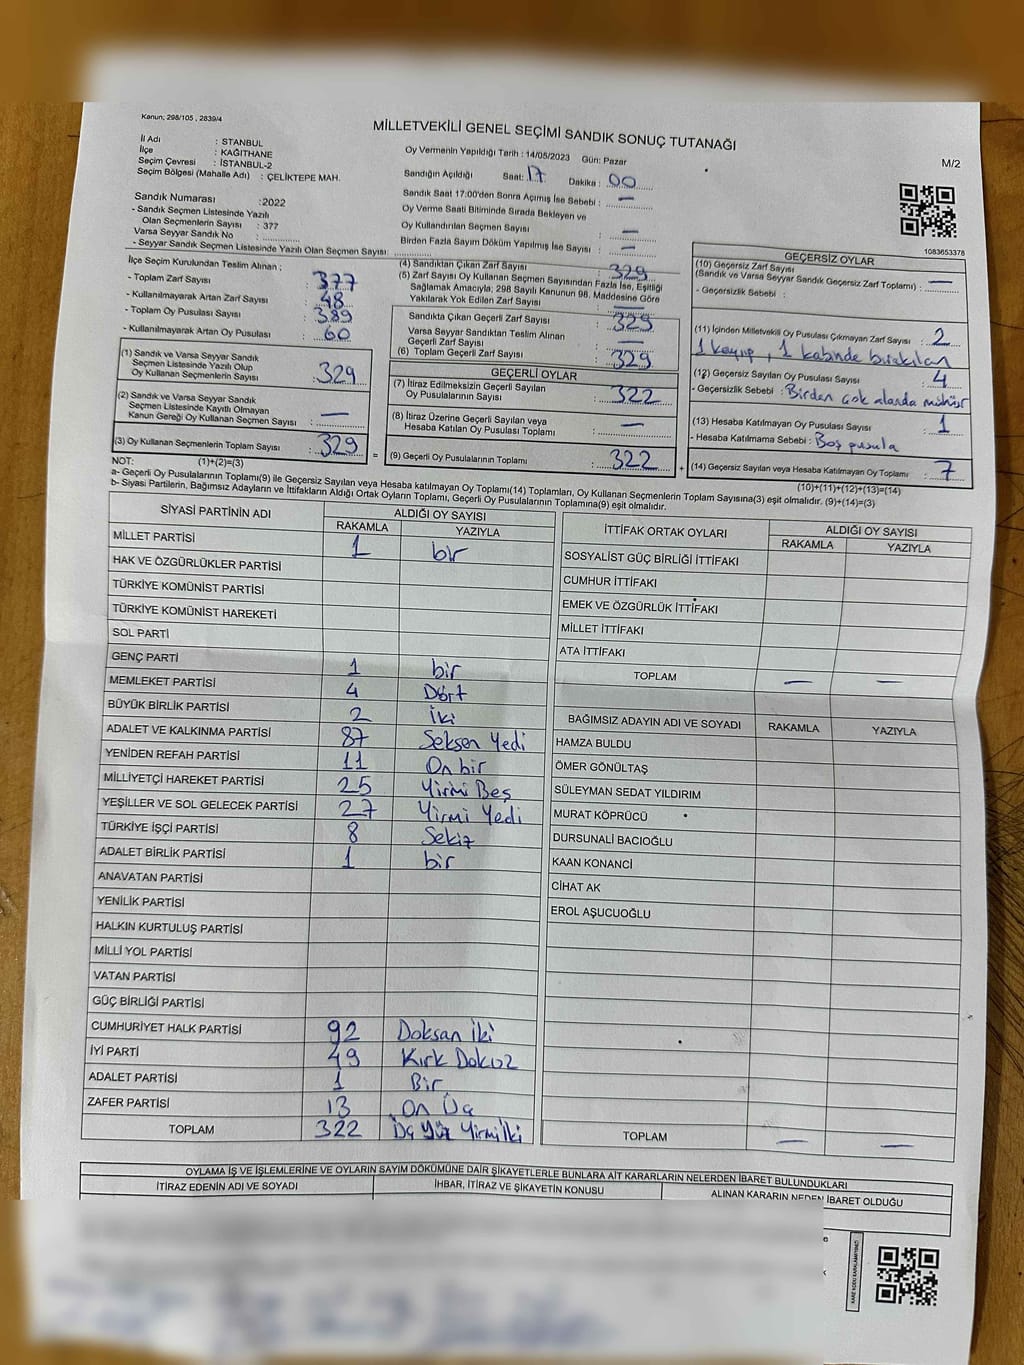 Kanun, 298/105 , 2839/4
MİLLETVEKİLİ GENEL SEÇİMİ SANDIK SONUÇ TUTANAĞI
M/2
İl Adı : STANBUL
İlçe : KAĞITHANE
Seçim Çevresi : İSTANBUL-2
Seçim Bölgesi (Mahalle Adı) : ÇELİKTEPE MAH.
Oy Vermenin Yapıldığı Tarih : 14/05/2023 Gün: Pazar
Sandığın Açıldığı Saat: 17 Dakika : 00
Sandık Saat 17:00'den Sonra Açımış İse Sebebi : —
Oy Verme Saati Bitiminde Sırada Bekleyen ve
Oy Kullandırılan Seçmen Sayısı : —
Birden Fazla Sayım Döküm Yapılmış İse Sayısı : —
Sandık Numarası : 2022
- Sandık Seçmen Listesinde Yazılı
Olan Seçmenlerin Sayısı : 377
Varsa Seyyar Sandık No :
- Seyyar Sandık Seçmen Listesinde Yazılı Olan Seçmen Sayısı:
1083653378
İlçe Seçim Kurulundan Teslim Alınan ;
- Toplam Zarf Sayısı : 377
- Kullanılmayarak Artan Zarf Sayısı : 48
- Toplam Oy Pusulası Sayısı : 389
- Kullanılmayarak Artan Oy Pusulası : 60
(1) Sandık ve Varsa Seyyar Sandık
Seçmen Listesinde Yazılı Olup
Oy Kullanan Seçmenlerin Sayısı : 329
(2) Sandık ve Varsa Seyyar Sandık
Seçmen Listesinde Kayıtlı Olmayan
Kanun Gereği Oy Kullanan Seçmen Sayısı : —
(3) Oy Kullanan Seçmenlerin Toplam Sayısı : 329 =
(4) Sandıktan Çıkan Zarf Sayısı : 329
(5) Zarf Sayısı Oy Kullanan Seçmen Sayısından Fazla İse, Eşitliği
Sağlamak Amacıyla, 298 Sayılı Kanunun 98. Maddesine Göre
Yakılarak Yok Edilen Zarf Sayısı : —
Sandıkta Çıkan Geçerli Zarf Sayısı : 329
Varsa Seyyar Sandıktan Teslim Alınan
Geçerli Zarf Sayısı : —
(6) Toplam Geçerli Zarf Sayısı : 329
GEÇERLİ OYLAR
(7) İtiraz Edilmeksizin Geçerli Sayılan
Oy Pusulalarının Sayısı : 322
(8) İtiraz Üzerine Geçerli Sayılan veya
Hesaba Katılan Oy Pusulası Toplamı : —
(9) Geçerli Oy Pusulalarının Toplamı : 322 +
GEÇERSİZ OYLAR
(10) Geçersiz Zarf Sayısı
(Sandık ve Varsa Seyyar Sandık Geçersiz Zarf Toplamı) : —
- Geçersizlik Sebebi :
(11) İçinden Milletvekili Oy Pusulası Çıkmayan Zarf Sayısı : 2
1 kayıp, 1 kabinde bırakılan
(12) Geçersiz Sayılan Oy Pusulası Sayısı : 4
- Geçersizlik Sebebi : Birden çok alanda mühür
(13) Hesaba Katılmayan Oy Pusulası Sayısı : 1
- Hesaba Katılmama Sebebi : Boş pusula
(14) Geçersiz Sayılan veya Hesaba Katılmayan Oy Toplamı : 7
NOT: (1)+(2)=(3)
(10)+(11)+(12)+(13)=(14)
a- Geçerli Oy Pusulaları Toplamı(9) ile Geçersiz Sayılan veya Hesaba katılmayan Oy Toplamı(14) Toplamları, Oy Kullanan Seçmenlerin Toplam Sayısına(3) eşit olmalıdır. (9)+(14)=(3)
b- Siyasi Partilerin, Bağımsız Adayların ve İttifakların Aldığı Ortak Oyların Toplamı, Geçerli Oy Pusulalarının Toplamına(9) eşit olmalıdır.
SİYASİ PARTİNİN ADI ALDIĞI OY SAYISI
RAKAMLA YAZIYLA
MİLLET PARTİSİ 1 bir
HAK VE ÖZGÜRLÜKLER PARTİSİ
TÜRKİYE KOMÜNİST PARTİSİ
TÜRKİYE KOMÜNİST HAREKETİ
SOL PARTİ
GENÇ PARTİ 1 bir
MEMLEKET PARTİSİ 4 Dört
BÜYÜK BİRLİK PARTİSİ 2 İki
ADALET VE KALKINMA PARTİSİ 87 Seksen Yedi
YENİDEN REFAH PARTİSİ 11 On bir
MİLLİYETÇİ HAREKET PARTİSİ 25 Yirmi Beş
YEŞİLLER VE SOL GELECEK PARTİSİ 27 Yirmi Yedi
TÜRKİYE İŞÇİ PARTİSİ 8 Sekiz
ADALET BİRLİK PARTİSİ 1 bir
ANAVATAN PARTİSİ
YENİLİK PARTİSİ
HALKIN KURTULUŞ PARTİSİ
MİLLİ YOL PARTİSİ
VATAN PARTİSİ
GÜÇ BİRLİĞİ PARTİSİ
CUMHURİYET HALK PARTİSİ 92 Doksan İki
İYİ PARTİ 49 Kırk Dokuz
ADALET PARTİSİ 1 Bir
ZAFER PARTİSİ 13 On Üç
TOPLAM 322 Üç Yüz Yirmi İki
İTTİFAK ORTAK OYLARI ALDIĞI OY SAYISI
RAKAMLA YAZIYLA
SOSYALİST GÜÇ BİRLİĞİ İTTİFAKI
CUMHUR İTTİFAKI
EMEK VE ÖZGÜRLÜK İTTİFAKI
MİLLET İTTİFAKI
ATA İTTİFAKI
TOPLAM — —
BAĞIMSIZ ADAYIN ADI VE SOYADI RAKAMLA YAZIYLA
HAMZA BULDU
ÖMER GÖNÜLTAŞ
SÜLEYMAN SEDAT YILDIRIM
MURAT KÖPRÜCÜ
DURSUNALİ BACIOĞLU
KAAN KONANCİ
CİHAT AK
EROL AŞUCUOĞLU
TOPLAM — —
OYLAMA İŞ VE İŞLEMLERİNE VE OYLARIN SAYIM DÖKÜMÜNE DAİR ŞİKAYETLERLE BUNLARA AİT KARARLARIN NELERDEN İBARET BULUNDUKLARI
İTİRAZ EDENİN ADI VE SOYADI İHBAR, İTİRAZ VE ŞİKAYETİN KONUSU ALINAN KARARIN NEDEN İBARET OLDUĞU